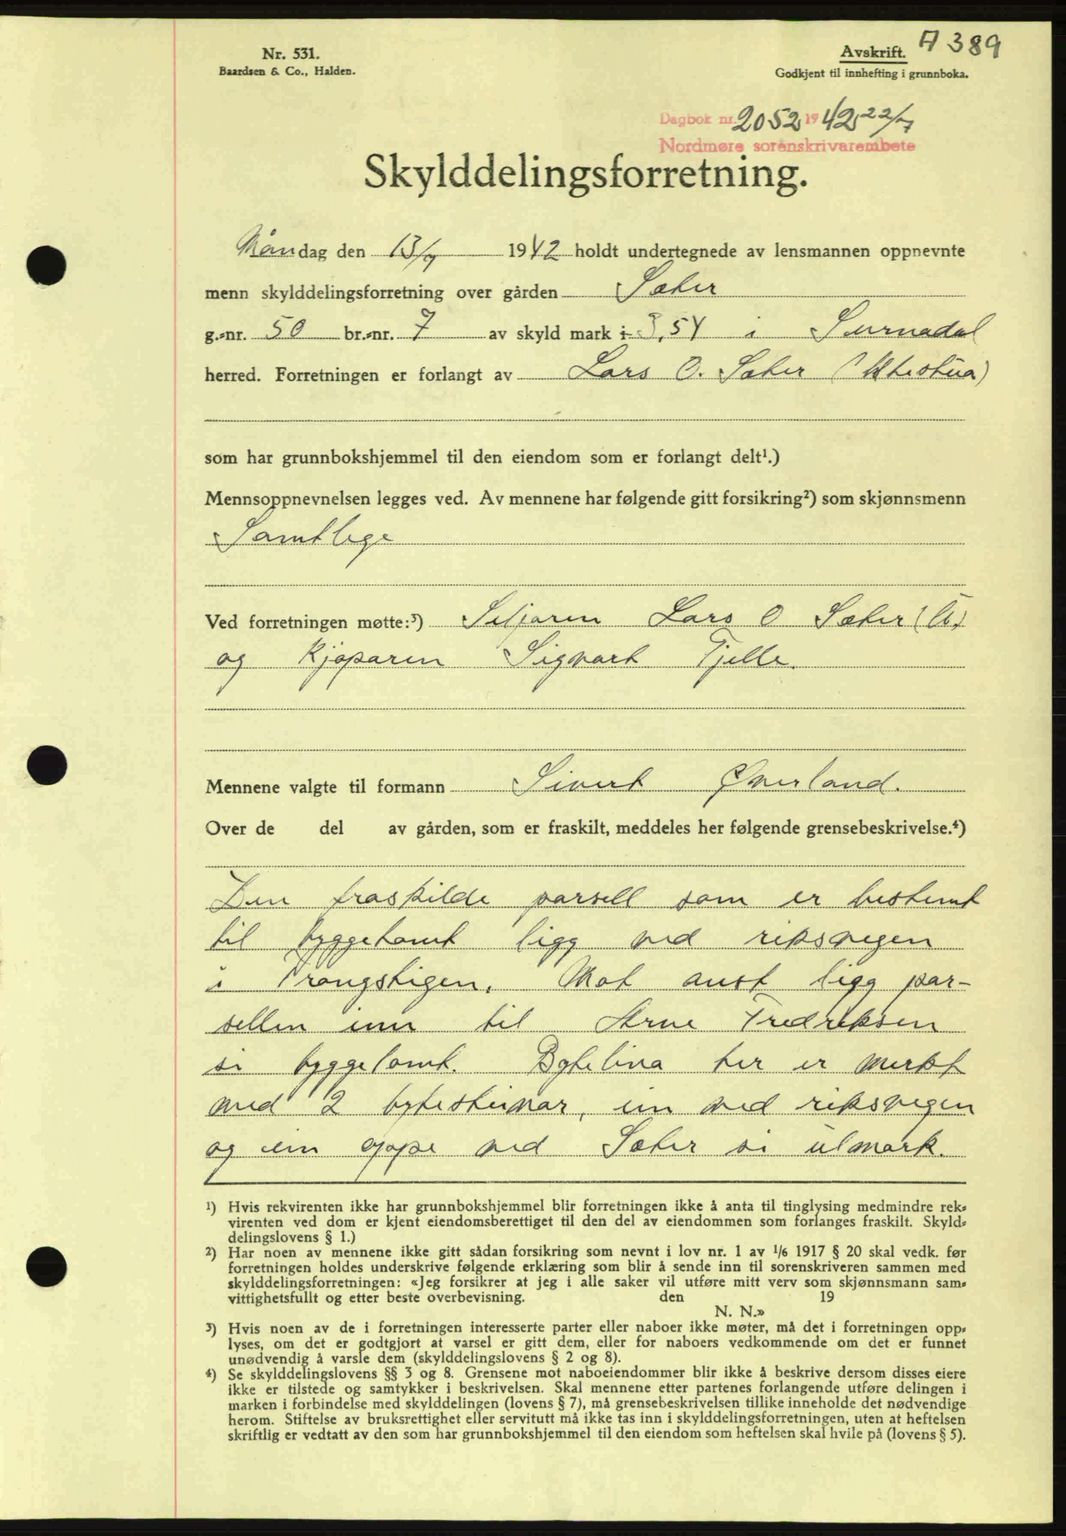 Nr. 531.
Baardsen & Co., Halden.
Avskrift. A 389
Godkjent til innhefting i grunnboka.
Dagbok nr. 2052 1942 22/7
Nordmøre sorenskrivarembete
Skylddelingsforretning.
Måndag den 13/7 1942 holdt undertegnede av lensmannen oppnevnte
menn skylddelingsforretning over gården Sæter
g.-nr. 50 br.-nr. 7 av skyld mark 3,54 i Surnadal
herred. Forretningen er forlangt av Lars O. Sæter
som har grunnbokshjemmel til den eiendom som er forlangt delt¹.)
Mennsoppnevnelsen legges ved. Av mennene har følgende gitt forsikring²) som skjønnsmenn
Samtlege
Ved forretningen møtte:³) Seljaren Lars O Sæter
og kjøparen Sigvart Tjelle.
Mennene valgte til formann Sivert Øverland.
Over de del av gården, som er fraskilt, meddeles her følgende grensebeskrivelse.⁴)
Den fraskilde parsell som er bestemt
til byggetomt ligg ved riksvegen
i Trongstigen. Mot aust ligg par-
sellen inn til Arne Fredriksen
si byggetomt. Bytelina her er merkt
med 2 bytesteinar, ein ved riksvegen
og ein oppe ved Sæter si utmark.
¹) Hvis rekvirenten ikke har grunnbokshjemmel blir forretningen ikke å anta til tinglysing medmindre rek-
virenten ved dom er kjent eiendomsberettiget til den del av eiendommen som forlanges fraskilt. Skyld-
delingslovens § 1.)
²) Har noen av mennene ikke gitt sådan forsikring som nevnt i lov nr. 1 av 1/6 1917 § 20 skal vedk. før
forretningen holdes underskrive følgende erklæring som blir å sende inn til sorenskriveren sammen med
skylddelingsforretningen: «Jeg forsikrer at jeg i alle saker vil utføre mitt verv som skjønnsmann sam-
vittighetsfullt og etter beste overbevisning. den 19
N. N.»
³) Hvis noen av de i forretningen interesserte parter eller naboer ikke møter, må det i forretningen opp-
lyses, om det er godtgjort at varsel er gitt dem, eller for naboers vedkommende om det er funnet
unødvendig å varsle dem (skylddelingslovens § 2 og 8).
⁴) Se skylddelingslovens §§ 3 og 8. Grensene mot naboeiendommer blir ikke å beskrive dersom disses eiere
ikke er tilstede og samtykker i beskrivelsen. Skal mennene etter partenes forlangende utføre delingen i
marken i forbindelse med skylddelingen (lovens § 7), må grensebeskrivelsen tillike inneholde det nødvendige
herom. Stiftelse av bruksrettighet eller servitutt må ikke tas inn i skylddelingsforretningen, uten at heftelsen
skriftlig er vedtatt av den som har grunnbokshjemmel til den eiendom som heftelsen skal hvile på (lovens § 5).